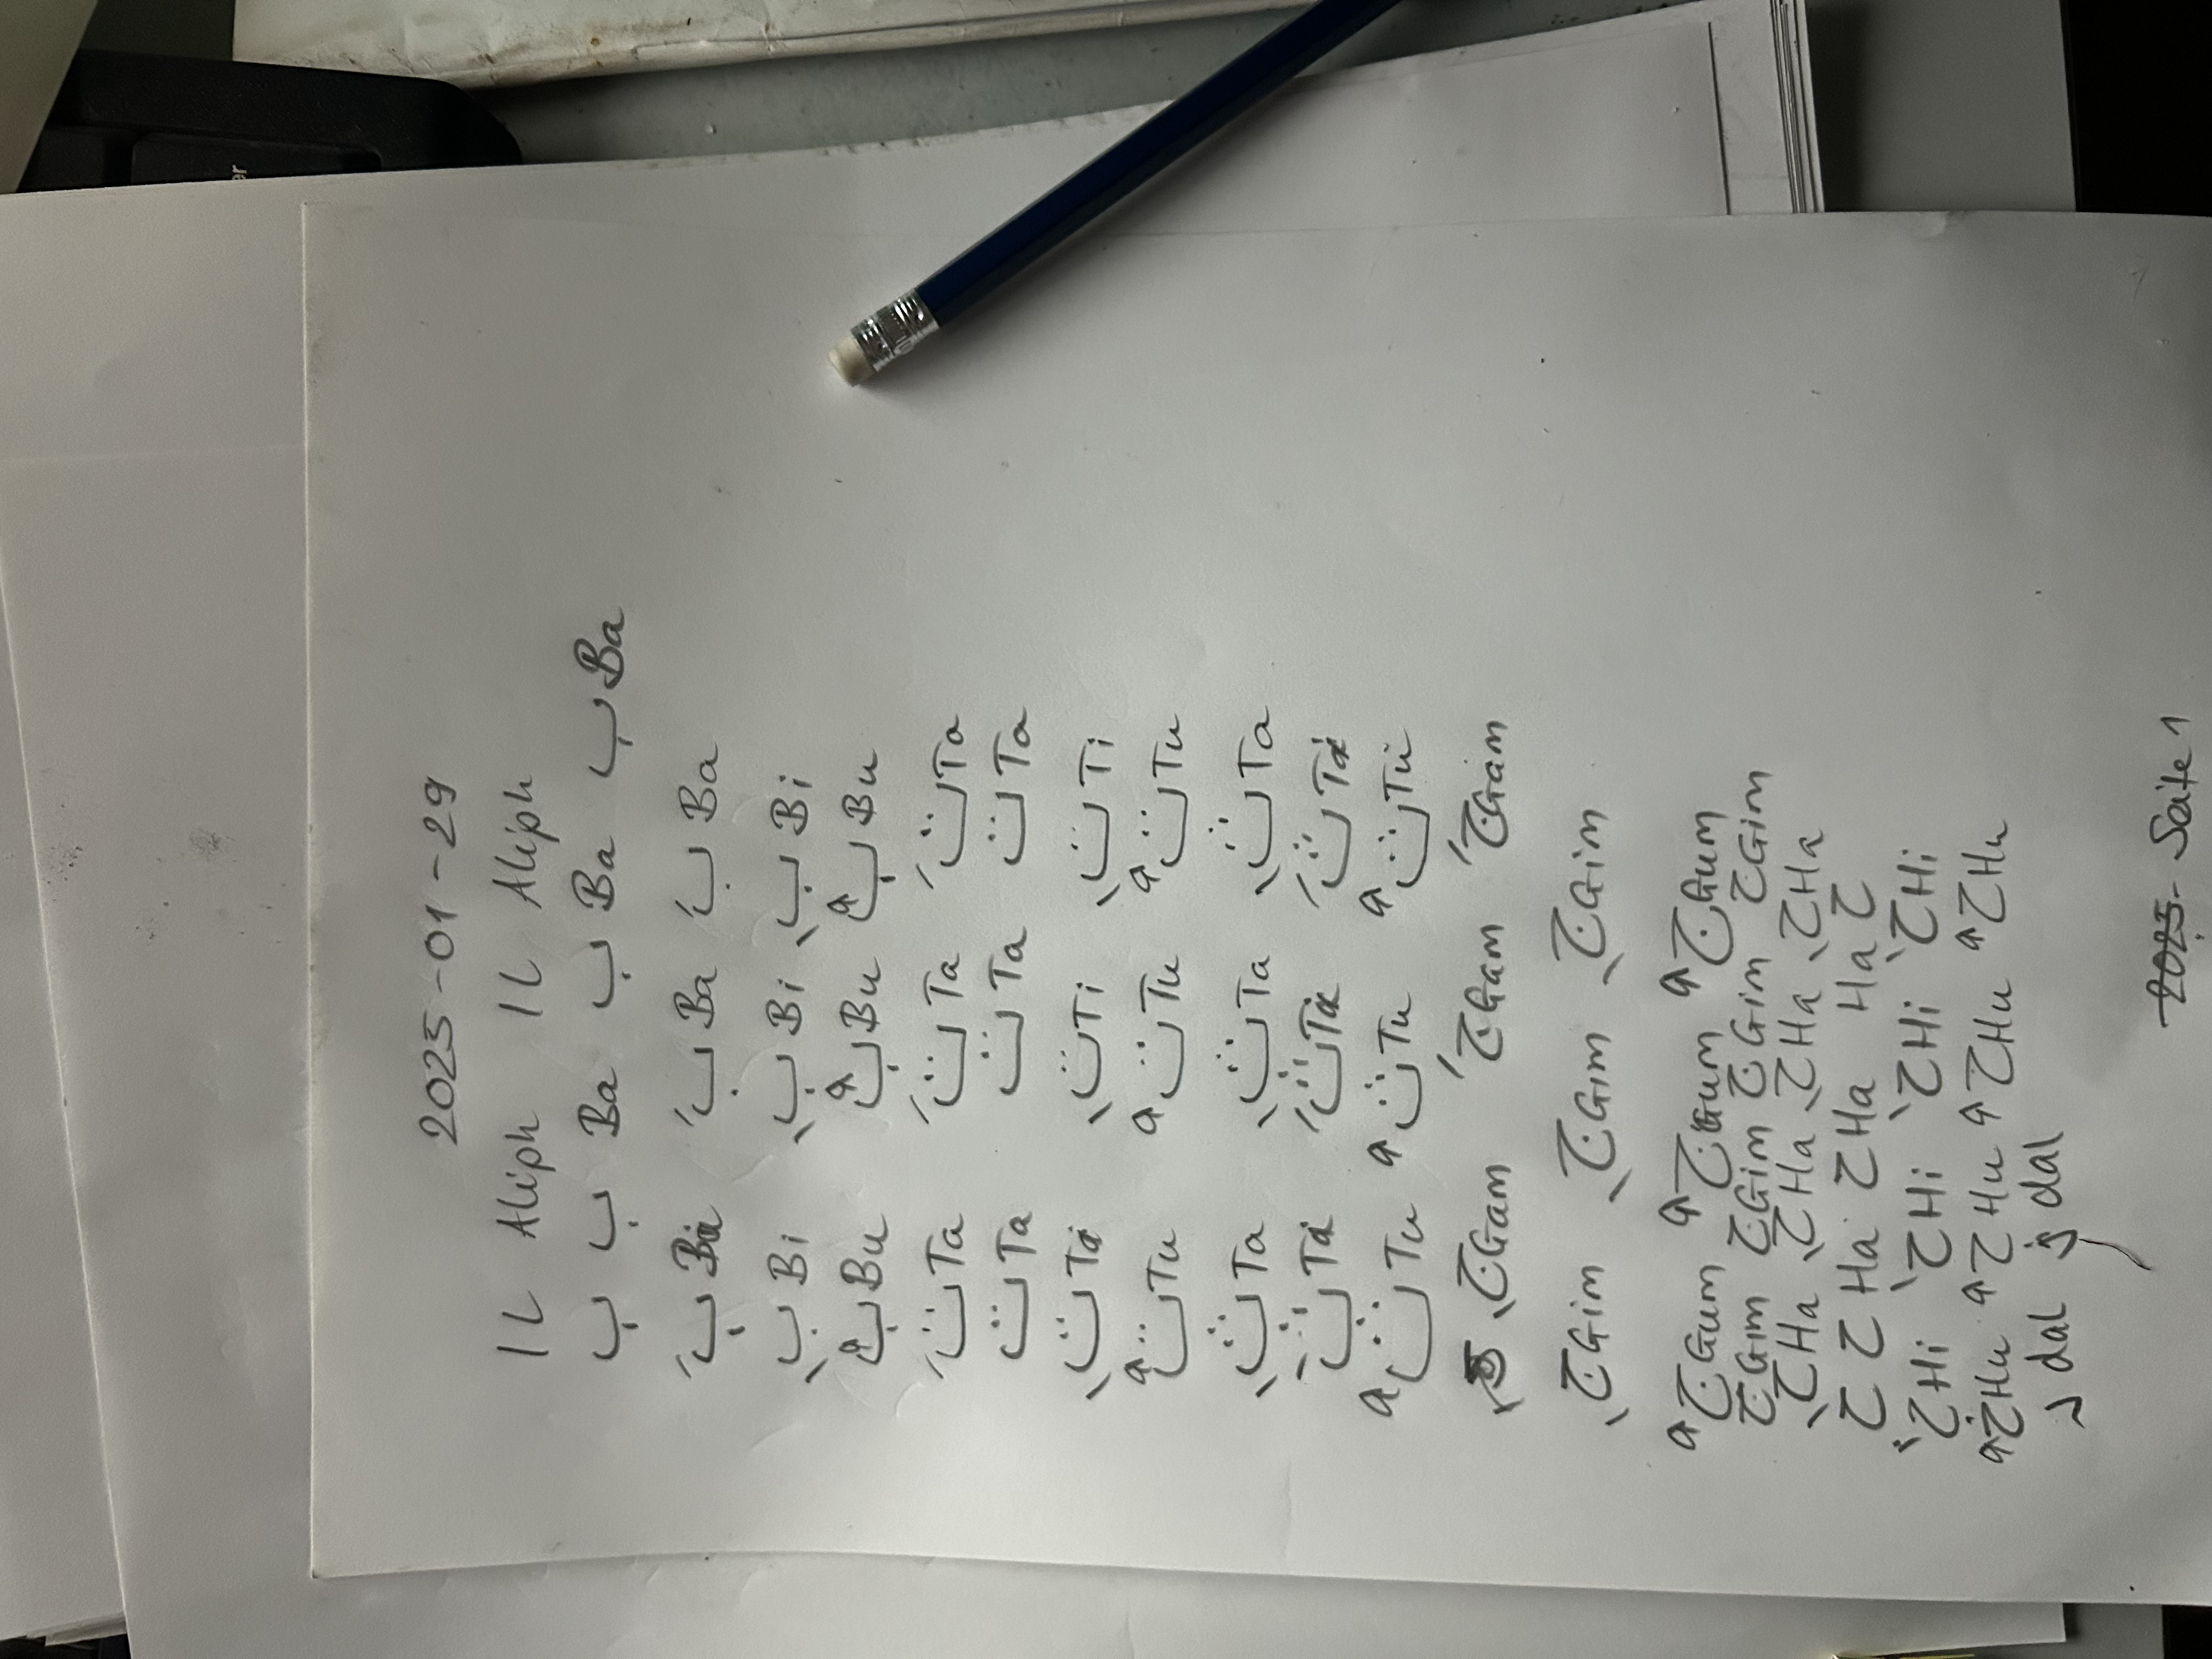 2025-01-29
ا ل Aliph ا ل Aliph
ب ب Ba ب Ba ب Ba
بَ Ba بَ Ba بَ Ba
بِ Bi بِ Bi بِ Bi
بُ Bu بُ Bu بُ Bu
تَ Ta تَ Ta تَ Ta
ت Ta ت Ta ت Ta
تِ Ti تِ Ti تِ Ti
تُ Tu تُ Tu تُ Tu
ثِ Ta ثِ Ta ثِ Ta
ثَ Ta ثَ Ta ثَ Ta
ثُ Tu ثُ Tu ثُ Tu
جِ Gam جَ Gam جَ Gam
جِ Gim جِ Gim جِ Gim
جُ Gum جُ Gum جُ Gum
ج Gim ج Gim ج Gim ح Gim
حِ Ha حِ Ha حِ Ha حِ Ha
ح ح Ha ح Ha Ha ح
حَ Hi حَ Hi حَ Hi حَ Hi
حُ Hu حُ Hu حُ Hu حُ Hu
د dal dal
2025- Seite 1